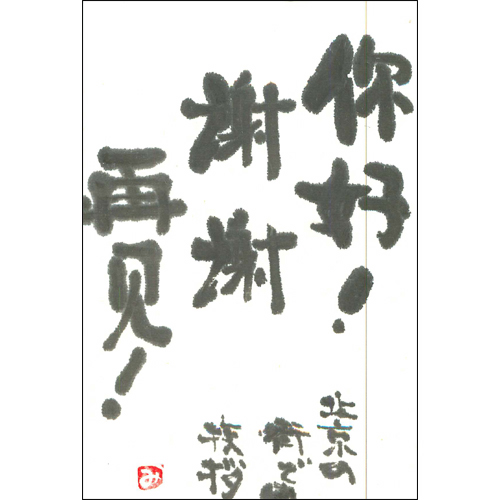 你好！
谢谢
再见！
北京の
街で
挨拶
み